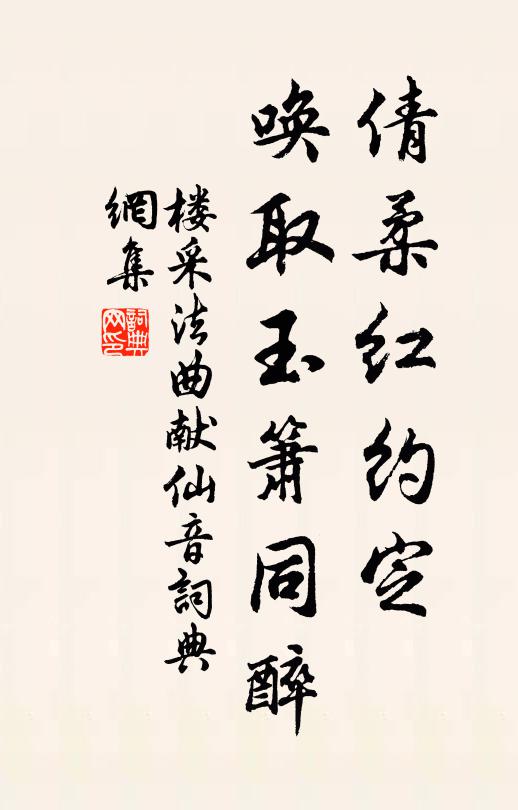 倩柔红约定
唤取玉箫同醉
楼采法曲献仙音詞典
網集
詞典
网印